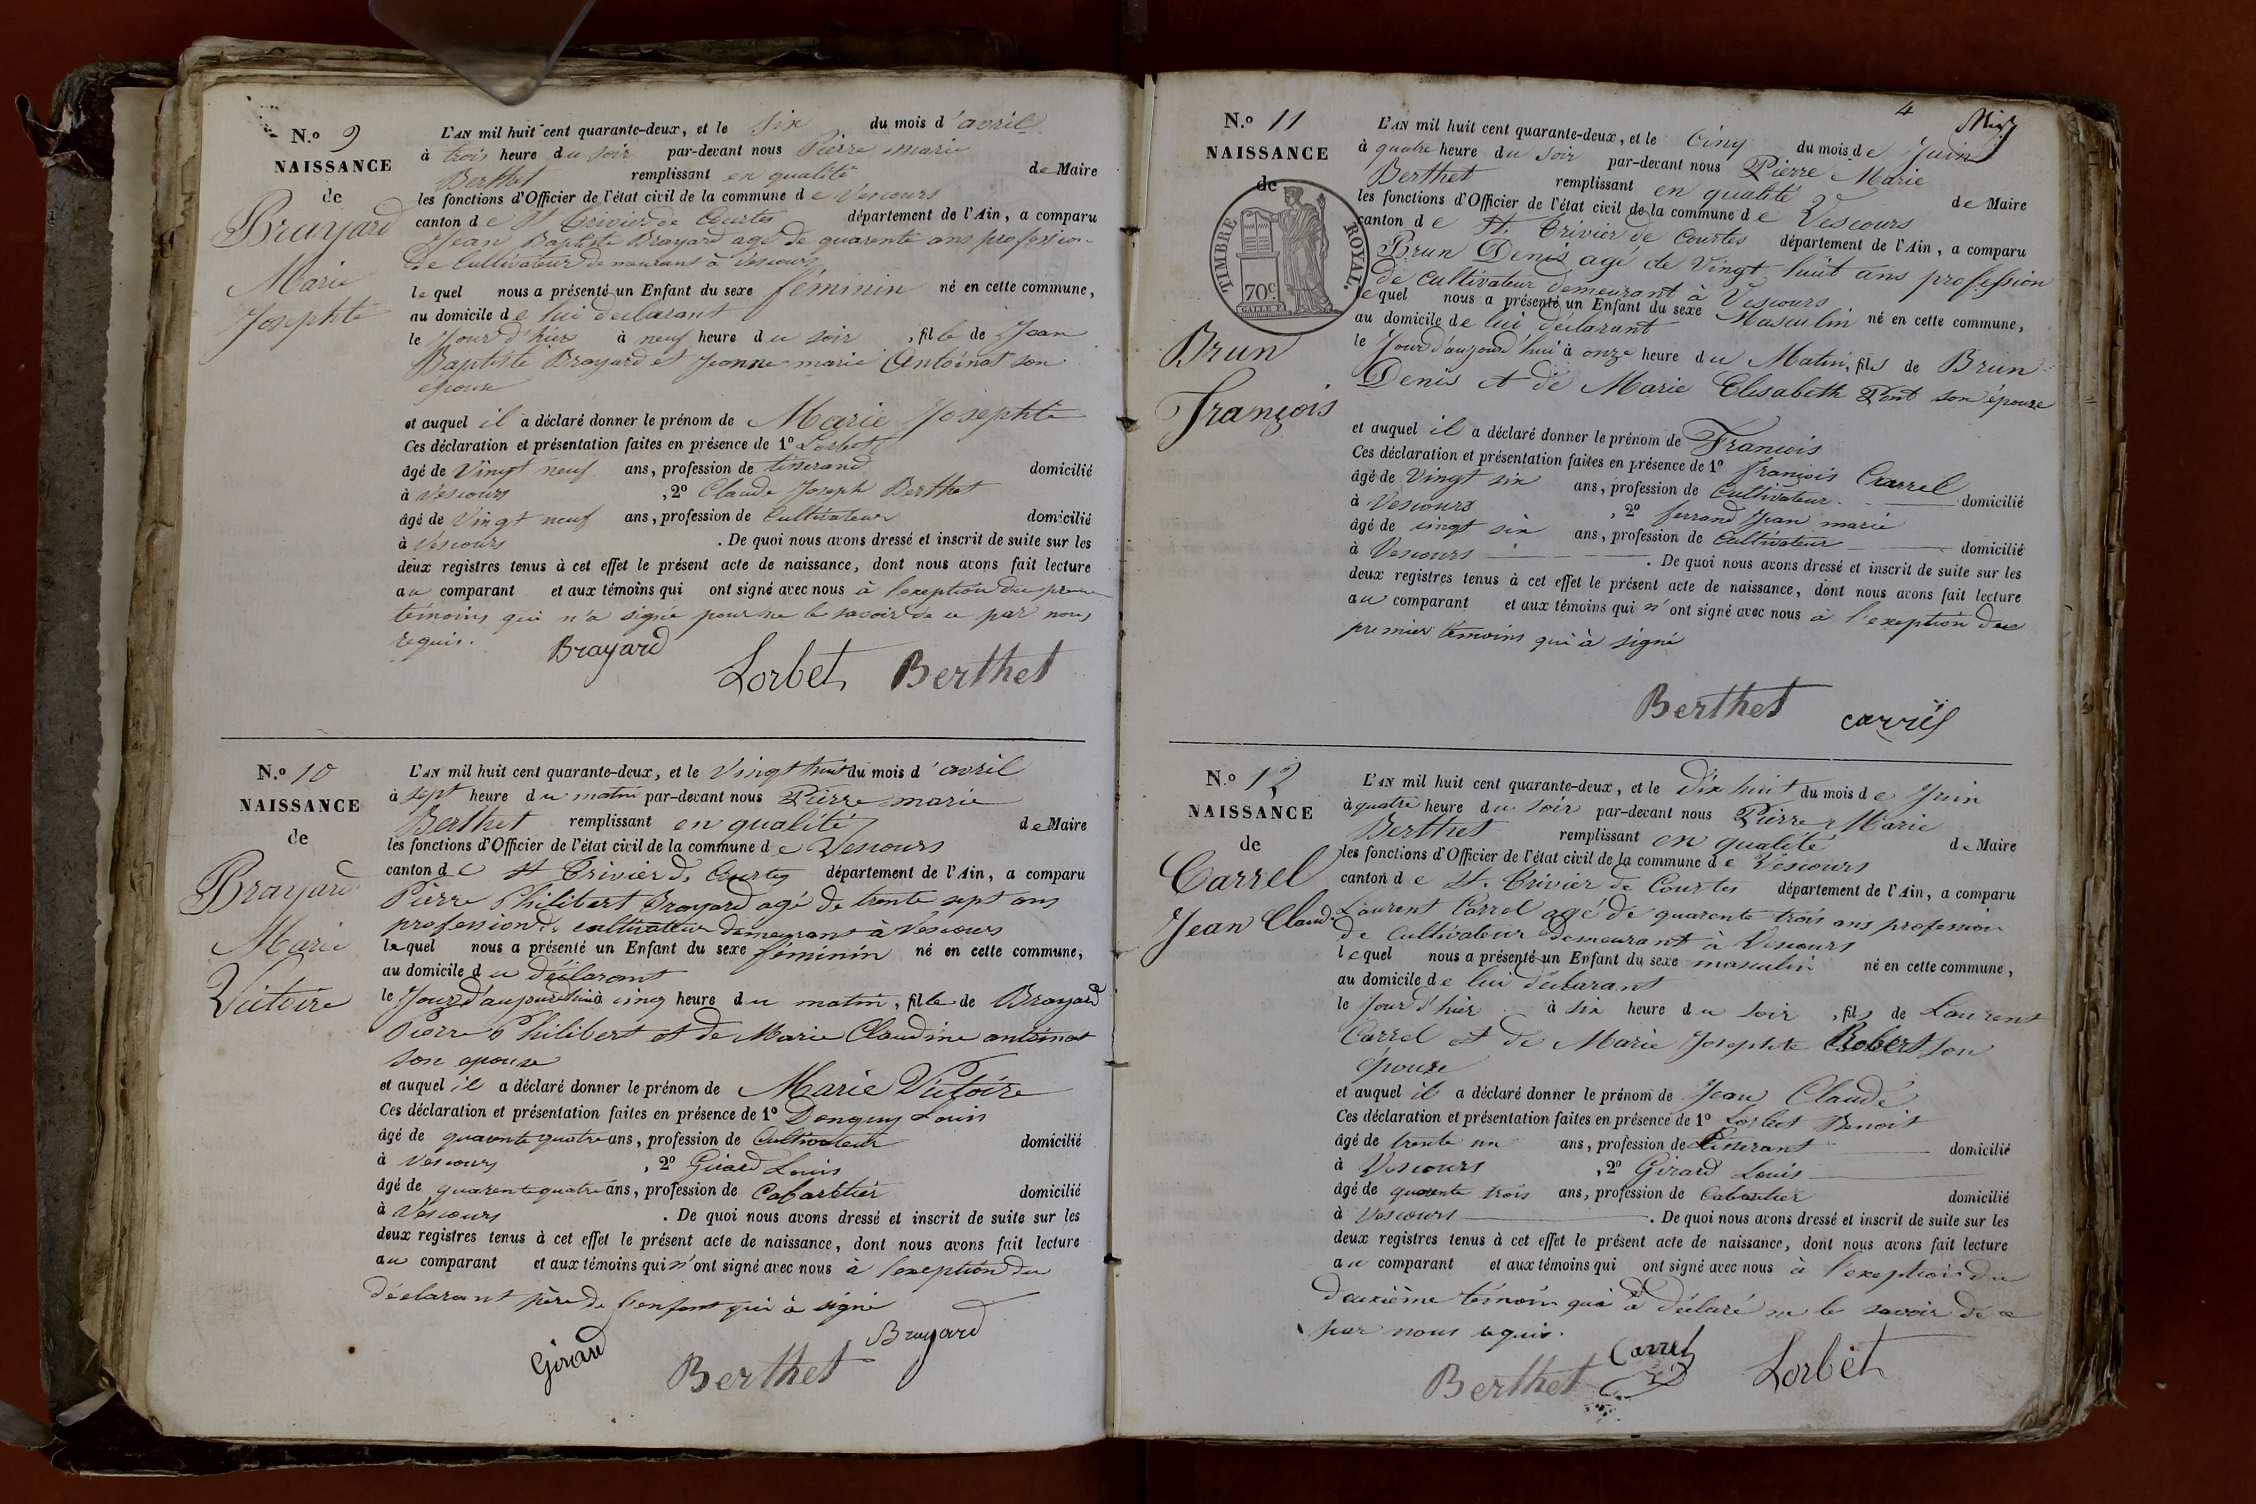 N.o 9
NAISSANCE
de
Brayard
Marie
Josephte
L'AN mil huit cent quarante-deux, et le six du mois d'avril
à trois heure du soir par-devant nous Pierre marie
Berthet remplissant en qualité de Maire
les fonctions d'Officier de l'état civil de la commune de Vescours
canton de St Trivier de Courtes département de l'Ain, a comparu
Jean Baptiste Brayard agé de quarente ans profession
de Cultivateur demeurant à Vescours
lequel nous a présenté un Enfant du sexe féminin né en cette commune,
au domicile de lui déclarant
le Jour d'hier à neuf heure du soir, fille de Jean
Baptiste Brayard et Jeanne marie Antoinat son
epouse
et auquel il a déclaré donner le prénom de Marie Josephte
Ces déclaration et présentation faites en présence de 1o Lorbet
âgé de Vingt neuf ans, profession de tisserand domicilié
à Vescours, 2o Claude Joseph Berthet
âgé de Vingt neuf ans, profession de Cultivateur domicilié
à Vescours. De quoi nous avons dressé et inscrit de suite sur les
deux registres tenus à cet effet le présent acte de naissance, dont nous avons fait lecture
au comparant et aux témoins qui ont signé avec nous à l'exeption du
témoins qui n'a signé pour ne le savoir de ce par nous
requis.
Brayard
Lorbet Berthet
N.o 10
NAISSANCE
de
Brayard
Marie
Victoire
L'AN mil huit cent quarante-deux, et le Vingt huit du mois d'avril
à sept heure du matin par-devant nous Pierre marie
Berthet remplissant en qualité de Maire
les fonctions d'Officier de l'état civil de la commune de Vescours
canton de St Trivier de Courtes département de l'Ain, a comparu
Pierre Philibert Brayard agé de trente sept ans
profession de cultivateur demeurant à Vescours
lequel nous a présenté un Enfant du sexe féminin né en cette commune,
au domicile du déclarant
le Jour d'aujourd'hui à cinq heure du matin, fille de Brayard
Pierre Philibert et de Marie Claudine antoinat
son epouse
et auquel il a déclaré donner le prénom de Marie Victoire
Ces déclaration et présentation faites en présence de 1o Donguy Louis
âgé de quarente quatre ans, profession de Cultivateur domicilié
à Vescours, 2o Girard Louis
âgé de quarente quatre ans, profession de Cabaretier domicilié
à Vescours. De quoi nous avons dressé et inscrit de suite sur les
deux registres tenus à cet effet le présent acte de naissance, dont nous avons fait lecture
au comparant et aux témoins qui n'ont signé avec nous à l'exeption du
déclarant père de l'enfant qui à signé
Girard Berthet Brayard
4
N.o 11
NAISSANCE
de
TIMBRE ROYAL.
70c
Brun
François
L'AN mil huit cent quarante-deux, et le Cinq du mois de Juin
à quatre heure du soir par-devant nous Pierre Marie
Berthet remplissant en qualité de Maire
les fonctions d'Officier de l'état civil de la commune de Vescours
canton de St. Trivier de Courtes département de l'Ain, a comparu
Brun Denis agé de Vingt huit ans profession
de cultivateur demeurant à Vescours
lequel nous a présenté un Enfant du sexe Masculin né en cette commune,
au domicile de lui déclarant
le Jour d'aujourd'hui à onze heure du Matin, fils de Brun
Denis et de Marie Elisabeth Pont son épouse
et auquel il a déclaré donner le prénom de François
Ces déclaration et présentation faites en présence de 1o françois Carrel
âgé de Vingt six ans, profession de Cultivateur domicilié
à Vescours, 2o ferrand Jean marie
âgé de vingt six ans, profession de Cultivateur domicilié
à Vescours. De quoi nous avons dressé et inscrit de suite sur les
deux registres tenus à cet effet le présent acte de naissance, dont nous avons fait lecture
au comparant et aux témoins qui n'ont signé avec nous à l'exeption du
premier témoins qui à signé
Berthet carrel
N.o 12
NAISSANCE
de
Carrel
Jean Claude
L'AN mil huit cent quarante-deux, et le dix huit du mois de Juin
à quatre heure du soir par-devant nous Pierre Marie
Berthet remplissant en qualité de Maire
les fonctions d'Officier de l'état civil de la commune de Vescours
canton de St. Trivier de Courtes département de l'Ain, a comparu
Laurent Carrel agé de quarente trois ans profession
de Cultivateur demeurant à Vescours
lequel nous a présenté un Enfant du sexe masculin né en cette commune,
au domicile de lui déclarant
le Jour d'hier à six heure du soir, fils de Laurent
Carrel et de Marie Josephte Robert son
épouse
et auquel il a déclaré donner le prénom de Jean Claude
Ces déclaration et présentation faites en présence de 1o Lorbet Benoit
âgé de trente un ans, profession de tisserant domicilié
à Vescours, 2o Girard Louis
âgé de quarente trois ans, profession de Cabaretier domicilié
à Vescours. De quoi nous avons dressé et inscrit de suite sur les
deux registres tenus à cet effet le présent acte de naissance, dont nous avons fait lecture
au comparant et aux témoins qui ont signé avec nous à l'exeption du
deuxième témoin qui à déclaré ne le savoir de ce
par nous requis.
Berthet Carrel Lorbet